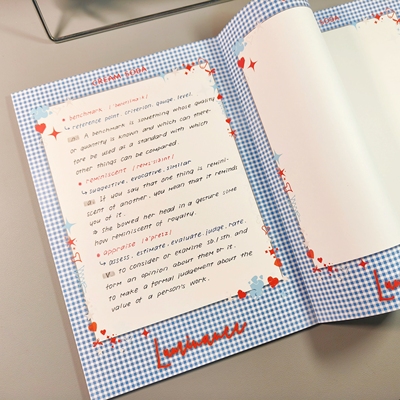 DREAM SUGAR
benchmark /ˈbentʃmɑːk/
reference point, criterion, gauge, level,
n. A benchmark is something whose quality
or quantity is known and which can there-
fore be used as a standard with which
other things can be compared.
reminiscent /ˌremɪˈnɪsnt/
suggestive, evocative, similar
a. If you say that one thing is remini-
scent of another, you mean that it reminds
you of it.
She bowed her head in a gesture some
how reminiscent of royalty.
appraise /əˈpreɪz/
assess, estimate, evaluate, judge, rate.
v. to consider or examine sb./sth. and
form an opinion about them or it.
to make a formal judgement about the
value of a person's work.